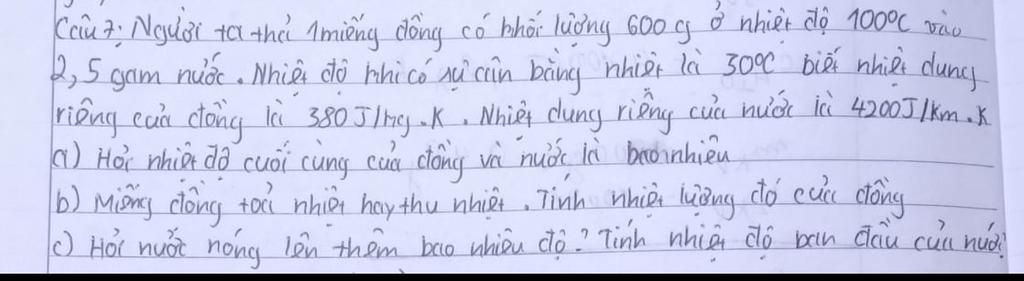 Câu 7: Người ta thả 1 miếng đồng có khối lượng 600 g ở nhiệt độ 100°C vào
2,5 gam nước. Nhiệt độ khi có sự cân bằng nhiệt là 30°C biết nhiệt dung
riêng của đồng là 380 J/kg.K. Nhiệt dung riêng của nước là 4200J/km.K
a) Hỏi nhiệt độ cuối cùng của đồng và nước là bao nhiêu
b) Miếng đồng toả nhiệt hay thu nhiệt. Tính nhiệt lượng đó của đồng
c) Hỏi nước nóng lên thêm bao nhiêu độ? Tính nhiệt độ ban đầu của nước?